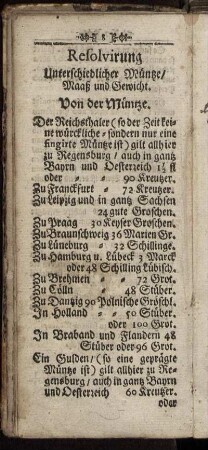 8
Resolvirung
Unterschiedlicher Müntze/
Maaß und Gewicht.
Von der Müntze.
Der Reichsthaler (so der Zeit kei-
ne würckliche - sondern nur eine
fingirte Müntze ist) gilt allhier
zu Regensburg / auch in gantz
Bayrn und Oesterreich 1½ fl
oder 90 Kreutzer.
Zu Franckfurt 72 Kreutzer.
Zu Leipzig und in gantz Sachsen
24 gute Groschen.
Zu Praag 30 Keyser Groschen.
Zu Braunschweig 36 Marien Gr.
Zu Lüneburg 32 Schillinge.
Zu Hamburg u. Lübeck 3 Marck
oder 48 Schilling Lübisch.
Zu Brehmen 72 Grot.
Zu Cölln 48 Stüber.
Zu Dantzig 90 Polnische Gröschl.
In Holland 50 Stüber
oder 100 Grot.
In Braband und Flandern 48
Stüber oder 96 Grot.
Ein Gulden / (so eine geprägte
Müntze ist) gilt allhier zu Re-
gensburg / auch in gantz Bayrn
und Oesterreich 60 Kreutzer.
oder